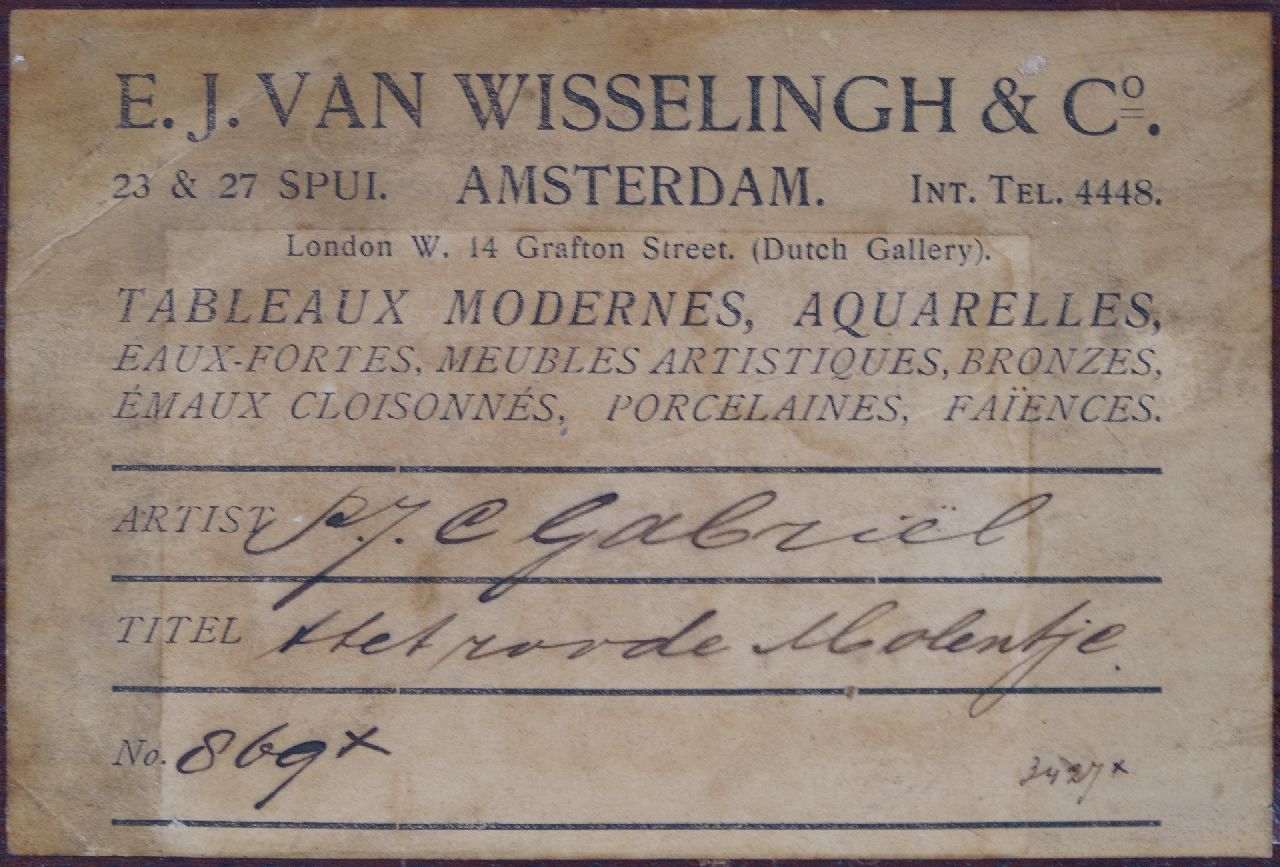 E. J. VAN WISSELINGH & Cº.
23 & 27 SPUI. AMSTERDAM. INT. TEL. 4448.
London W. 14 Grafton Street. (Dutch Gallery).
TABLEAUX MODERNES, AQUARELLES,
EAUX-FORTES, MEUBLES ARTISTIQUES, BRONZES,
ÉMAUX CLOISONNÉS, PORCELAINES, FAÏENCES.
ARTIST P. J. C Gabriël
TITEL Het roode Molentje.
No. 869x